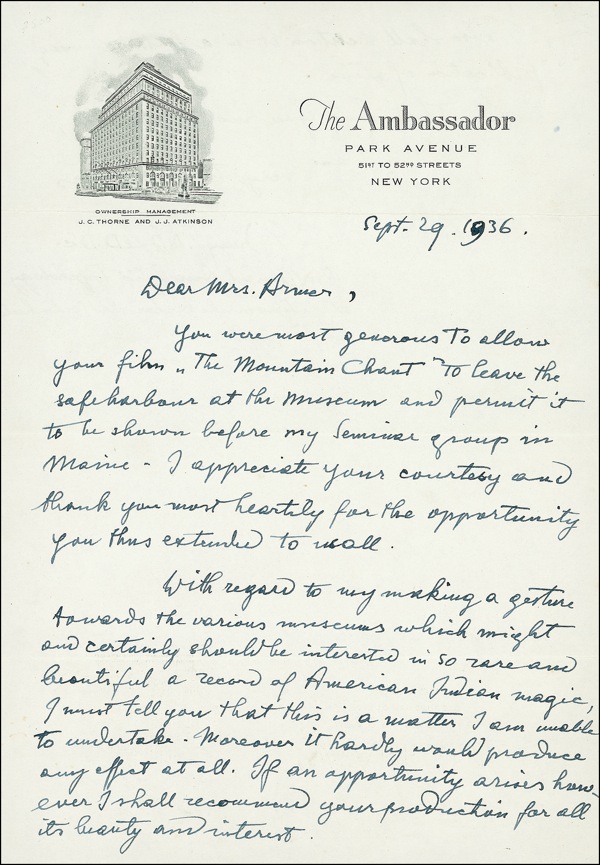 The Ambassador
PARK AVENUE
51ST TO 52ND STREETS
NEW YORK
OWNERSHIP MANAGEMENT
J. C. THORNE AND J. J. ATKINSON
Sept. 29. 1936.
Dear Mrs. Armer,
You were most generous to allow
your film „The Mountain Chant" to leave the
safe harbour at the Museum and permit it
to be shown before my Seminar group in
Maine - I appreciate your courtesy and
thank you most heartily for the opportunity
you thus extended to us all.
With regard to my making a gesture
towards the various museums which might
and certainly should be interested in so rare and
beautiful a record of American Indian magic,
I must tell you that this is a matter I am unable
to undertake. Moreover it hardly would produce
any effect at all. If an opportunity arises how-
ever I shall recommend your production for all
its beauty and interest.